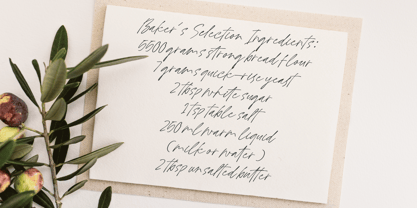 Baker's Selection Ingredients:
5500 grams strong bread flour
7 grams quick-rise yeast
2 tbsp white sugar
1 tsp table salt
250 ml warm liquid
(milk or water)
2 tbsp unsalted butter